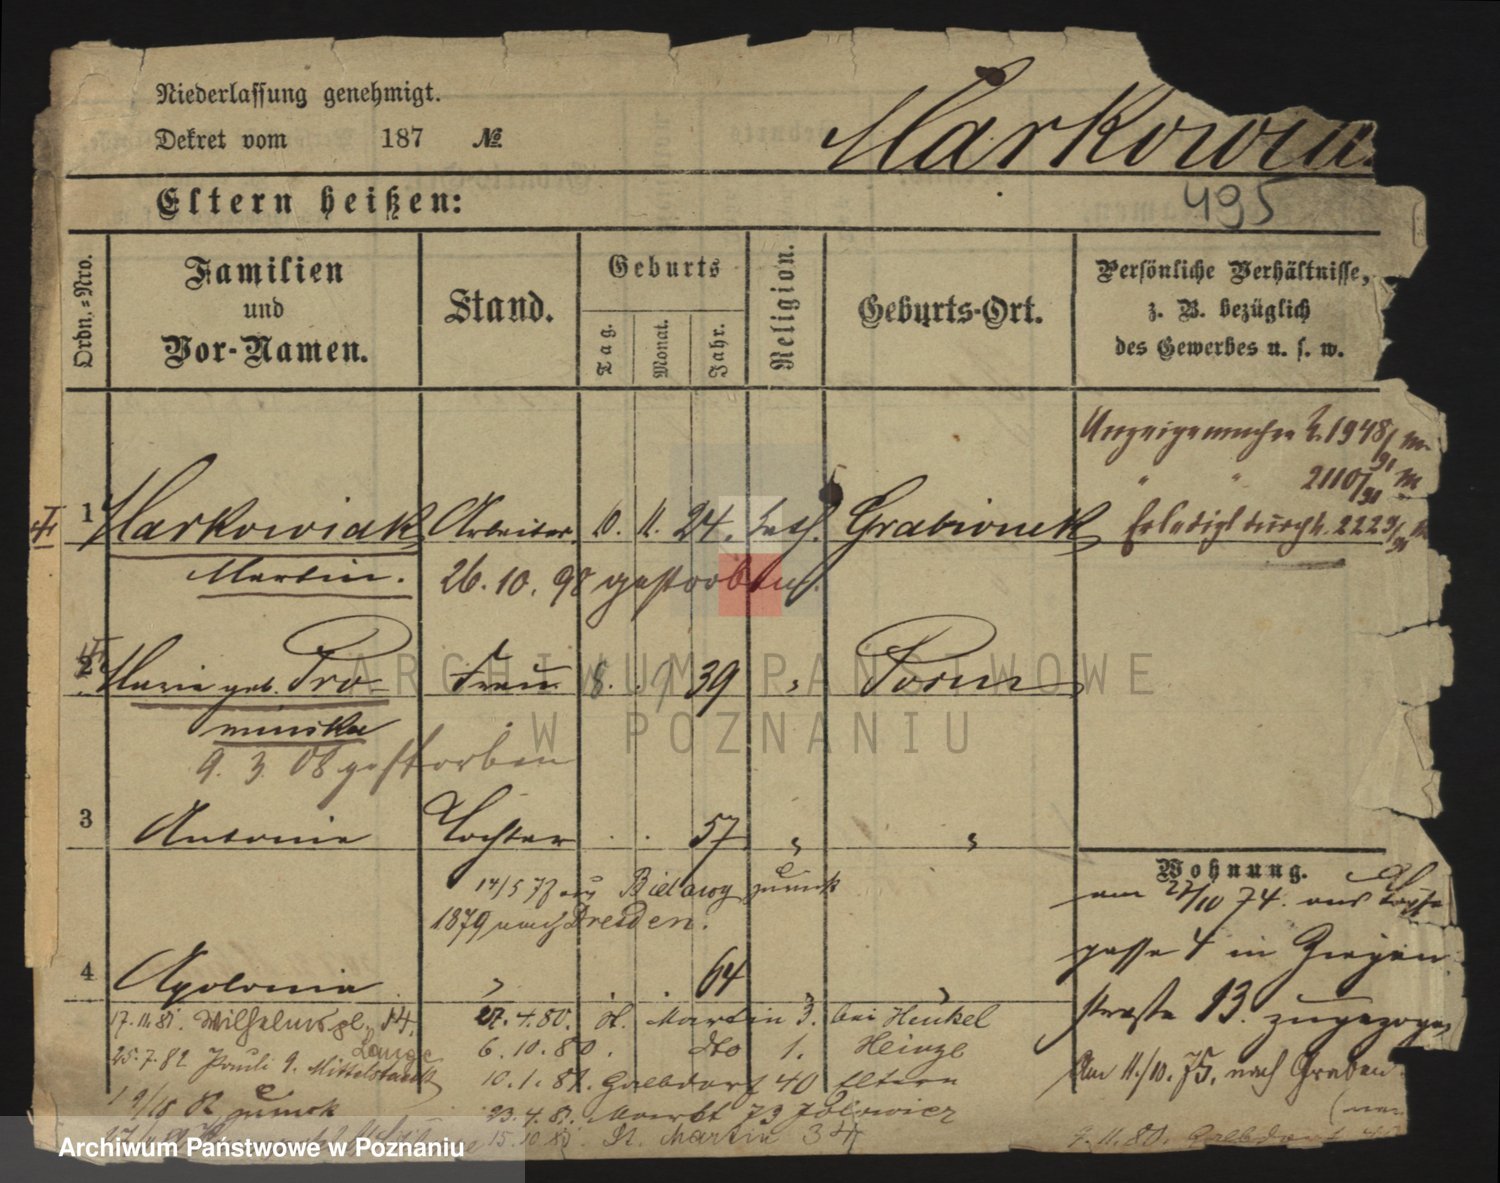 Niederlassung genehmigt.
Dekret vom 187 №
Markowia
495
Eltern heißen:
Ordn.=Nro.
Familien
und
Vor-Namen.
Stand.
Geburts
Tag.
Monat.
Jahr.
Religion.
Geburts-Ort.
Persönliche Verhältnisse,
z. B. bezüglich
des Gewerbes u. s. w.
1948/91
2110/91
1 Markowiak Arbeiter. 10. 11. 24. kath. Grabionek
Erledigt durch 2223/91
Martin.
26.10.98 gestorben.
2 Marie geb. Pro Frau 8. 9 39 " Posen
minska
9. 3. 08 gestorben
3 Antonie Tochter . . 57 " "
14/5 77 Bielawy zurück
1879 nach Dresden.
4 Apolonia " . . 64 " "
17.11.81. Wilhelmspl. 14.
Lange
25.7.82 Pauli 9. Mittelstaedt
19/10 82 zurück
27.4.80. St. Martin 3. bei Henkel
6.10.80. dto 1. Heinze
10.1.81. Halbdorf 40 Eltern
23.4.81. Markt 73
15.10.81 St. Martin 34
Wohnung.
am 27/10 74. aus
gasse 4 in Ziegen
straße 13. zugezogen
Am 11/10. 75. nach Graben.
7.11.80. Halbdorf
ARCHIWUM PAŃSTWOWE
W POZNANIU
Archiwum Państwowe w Poznaniu